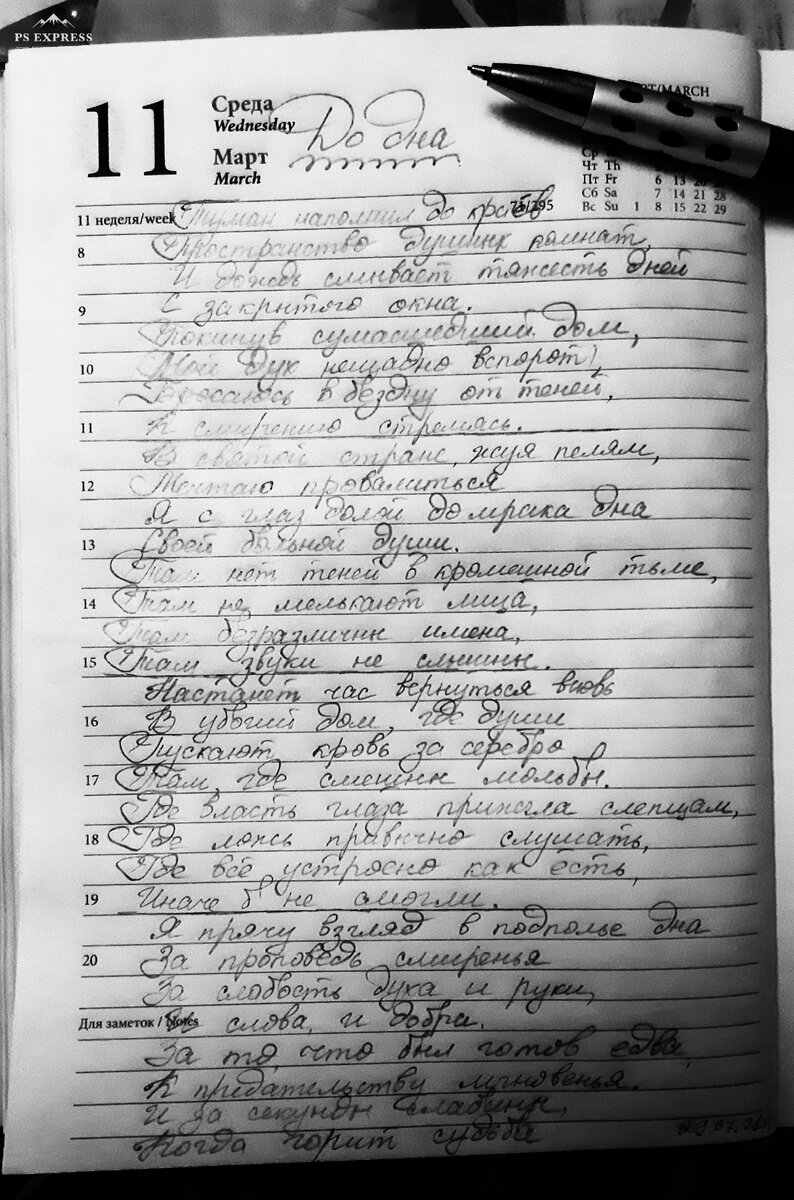 PS EXPRESS
11
Среда
Wednesday
Март
March
До дна
/MARCH
Ср
Чт Th
Пт Fr 6 13 20
Сб Sa 7 14 21 28
Вс Su 1 8 15 22 29
11 неделя/week
/295
Туман наполнил до краёв
8
Пространство душных комнат,
И дождь смывает тяжесть дней
9
С закрытого окна.
Покинув сумасшедший дом,
10
Мой дух нещадно вспорот,
Бросаюсь в бездну от теней,
11
К смирению стремясь.
В святой стране, жуя пелям,
12
Мечтаю провалиться
Я с глаз долой до мрака дна
13
Своей больной души.
Там нет теней в кромешной тьме,
14
Там не мелькают лица,
Там безразличны имена,
15
Там звуки не слышны.
Настанет час вернуться вновь
16
В убогий дом, где души
Пускают кровь за серебро
17
Там, где смешны мольбы.
Где власть глаза прижгла слепцам,
18
Где ложь привычно слушать,
Где всё устроено как есть,
19
Иначе б не смогли.
Я прячу взгляд в подполье дна
20
За проповедь смиренья
За слабость духа и руки,
Для заметок / Notes
слова, и добра.
За то, что был готов едва
К предательству мгновенья.
И за секунды слабины,
Когда горит судьба